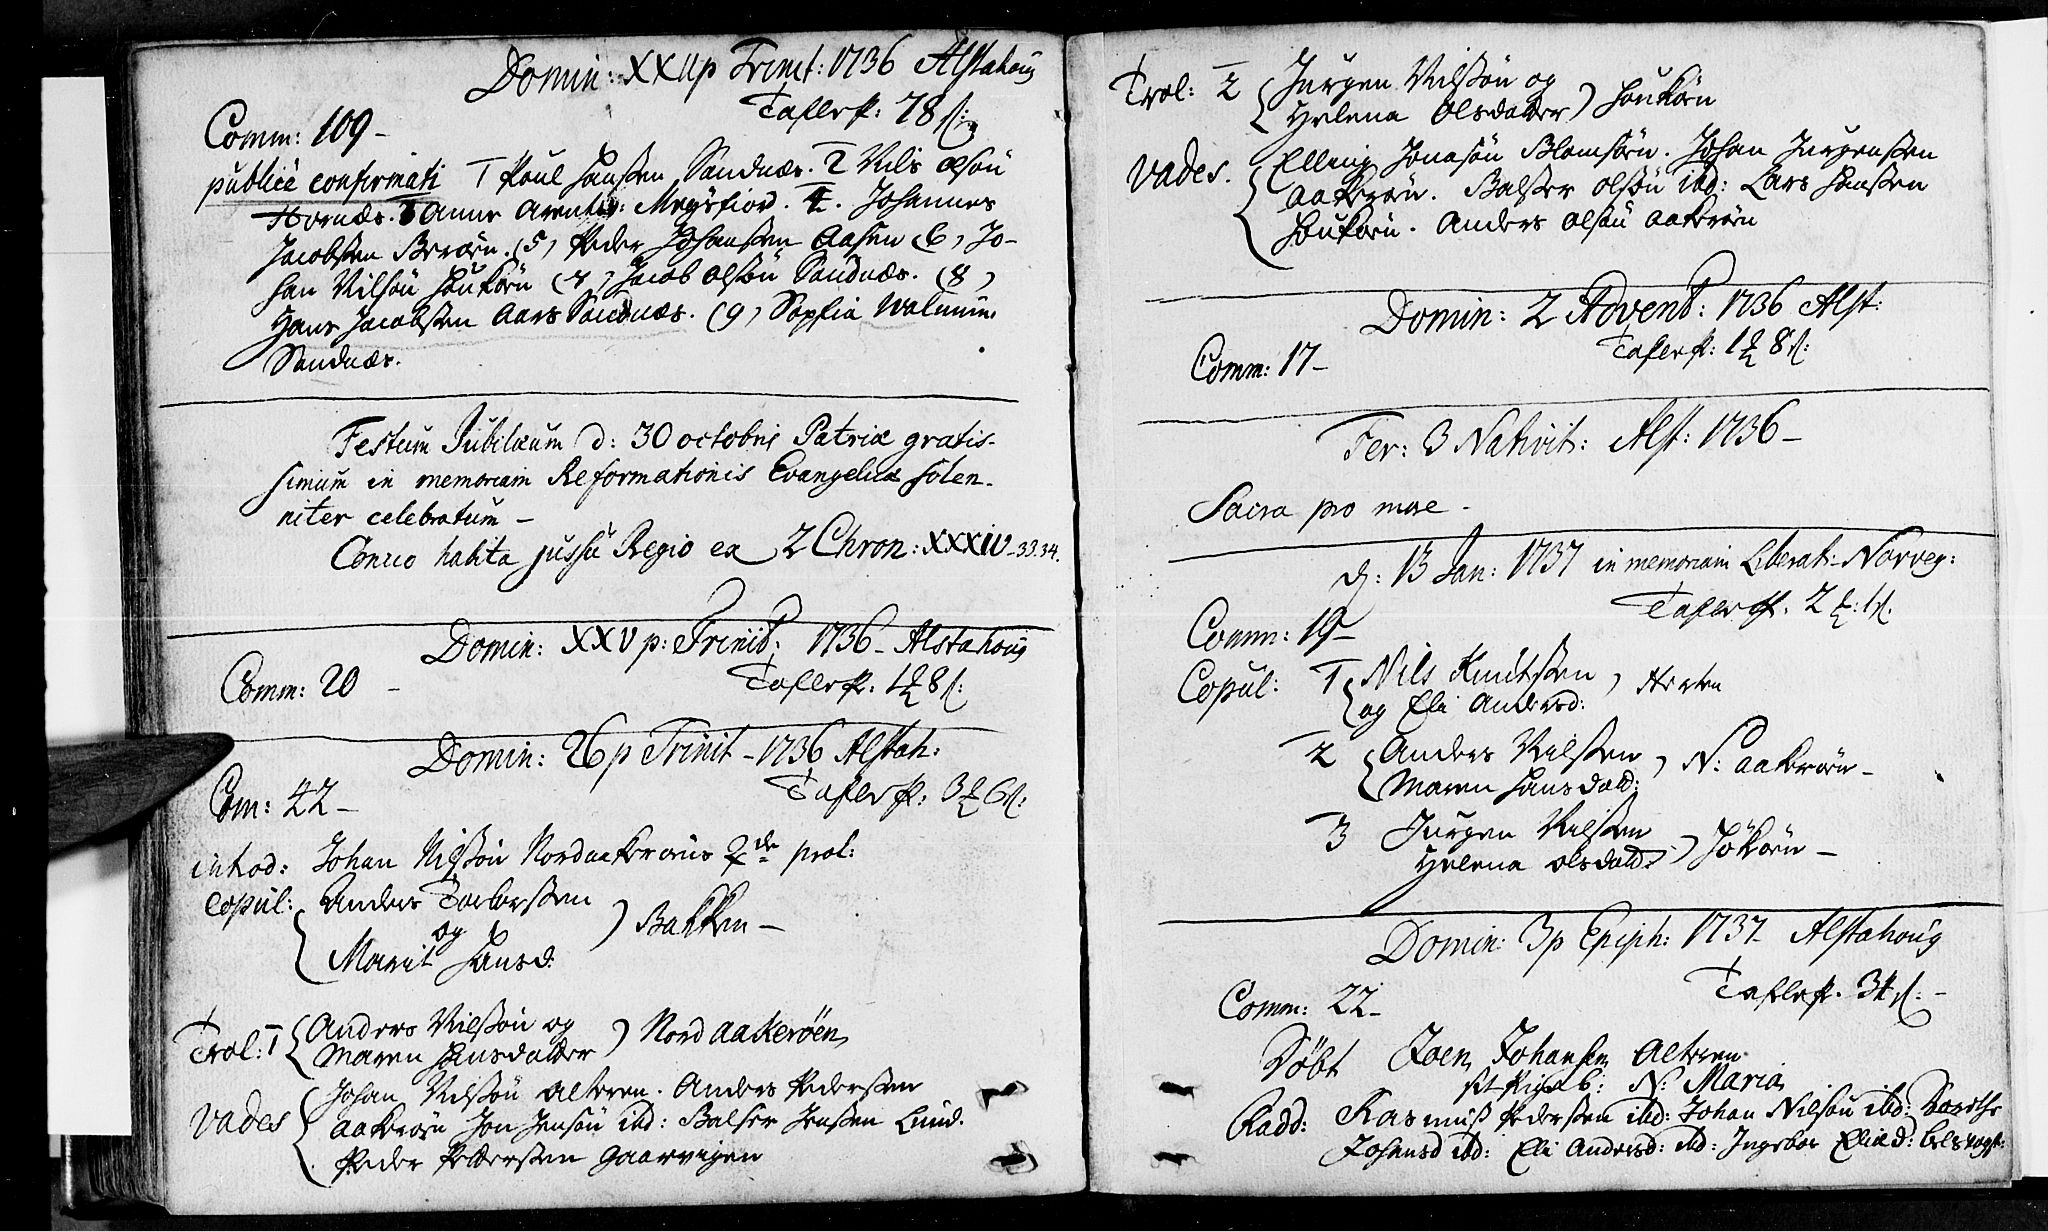 Domin: XXII p Trinit: 1736 Alstahoug
Taflerp: 78 s:
Comm: 109 –
publicè confirmati 1 Poul Hansen Sandnæs. 2 Nils Olsøn
Hornæs. 3 Anne Arentsd: Meysfiord. 4. Johannes
Jacobsen Berøen. (5, Peder Johansen Aasen (6, Jo-
han Nilsøn Houkøen (7, Jacob Olsøn Sandnæs. (8,
Hans Jacobsen Aars Sandnæs. (9, Sophia
Sandnæs.
Festum Jubilæum d: 30 octobris Patriæ gratis-
simum in memoriam Reformationis Evangelicæ solen-
niter celebratum –
Concio habita jussu Regio ex 2 Chron: XXXIV – 33.34.
Domin: XXV p: Trinit: 1736 – Alstahoug
Taflerp. 1 8 s:
Comm: 20 –
Domin: 26 p Trinit – 1736 Alstah:
Taflerp: 3 6 s:
Com: 42 –
introd: Johan Nilsøn Nordaakerøens 2de prol:
Copul: Anders
og
Marit Hansd:
Bakken –
Trol: 1 Anders Nilsøn og
Maren Hansdatter
Nord Aakerøen
Vades Johan Nilsøn Alteren. Anders Pedersen
Aakerøen Jon Jensøn ibd: Balser Jensen Lund.
Peder Pedersen Gaarvigen
Trol: 2 Jurgen Nilsøn og
Helena Olsdatter
Houkøen
Vades. Elling Jonasøn Blomsøen. Johan Jurgensen
Aakerøen. Balser Olsøn ibd: Lars Hansen
Houkøen. Anders Olsøn Aakerøen
Domin: 2 Advent: 1736 Alst:
Taflerp: 1 8 s:
Comm: 17 –
Fer: 3 Nativit: Alst: 1736 –
Sacra pro more –
d: 13 Jan: 1737 in memoriam Liberat: Norveg:
Taflerp. 2
Comm: 19 –
Copul: 1 Nils Knudtsen
og Eli Andersd:
Herten
2 Anders Nilsen
Maren Hansdatt:
N: Aakerøen –
3 Jurgen Nilsen
Helena Olsdatt:
Høkøen –
Domin: 3 p Epiph: 1737 – Alstahoug
Taflerp. 34 s: –
Comm: 22 –
Døbt Joen Johansen Alteren
N: Maria
Fadd: Rasmus Pedersen ibd: Johan Nilsøn ibd: Dorethe
Johansd ibd: Eli Andersd: ibd: Ingebor Eliæd: